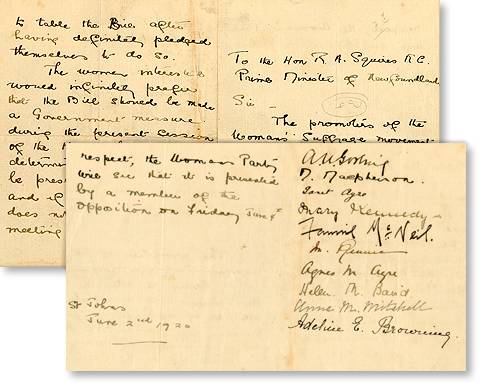 to table the Bill after
having definitely pledged
themselves to do so.
The women interested
would infinitely prefer
that the Bill should be made
a Government measure
during the present Session
of the
determin
be pres
and if
does no
meeting
To the Hon R. A. Squires K.C.
Prime Minister of Newfoundland
Sir –
The promoters of the
Womans' Suffrage movement
respect, the Womans Party
will see that it is presented
by a member of the
Opposition on Friday June 4th
St Johns
June 2nd 1920
A N Gosling
Macpherson.
Janet Ayre
Mary Kennedy –
Fannie McNeil.
Agnes M Ayre
Helen M. Baird
Anna M. Mitchell
Adeline E. Browning.